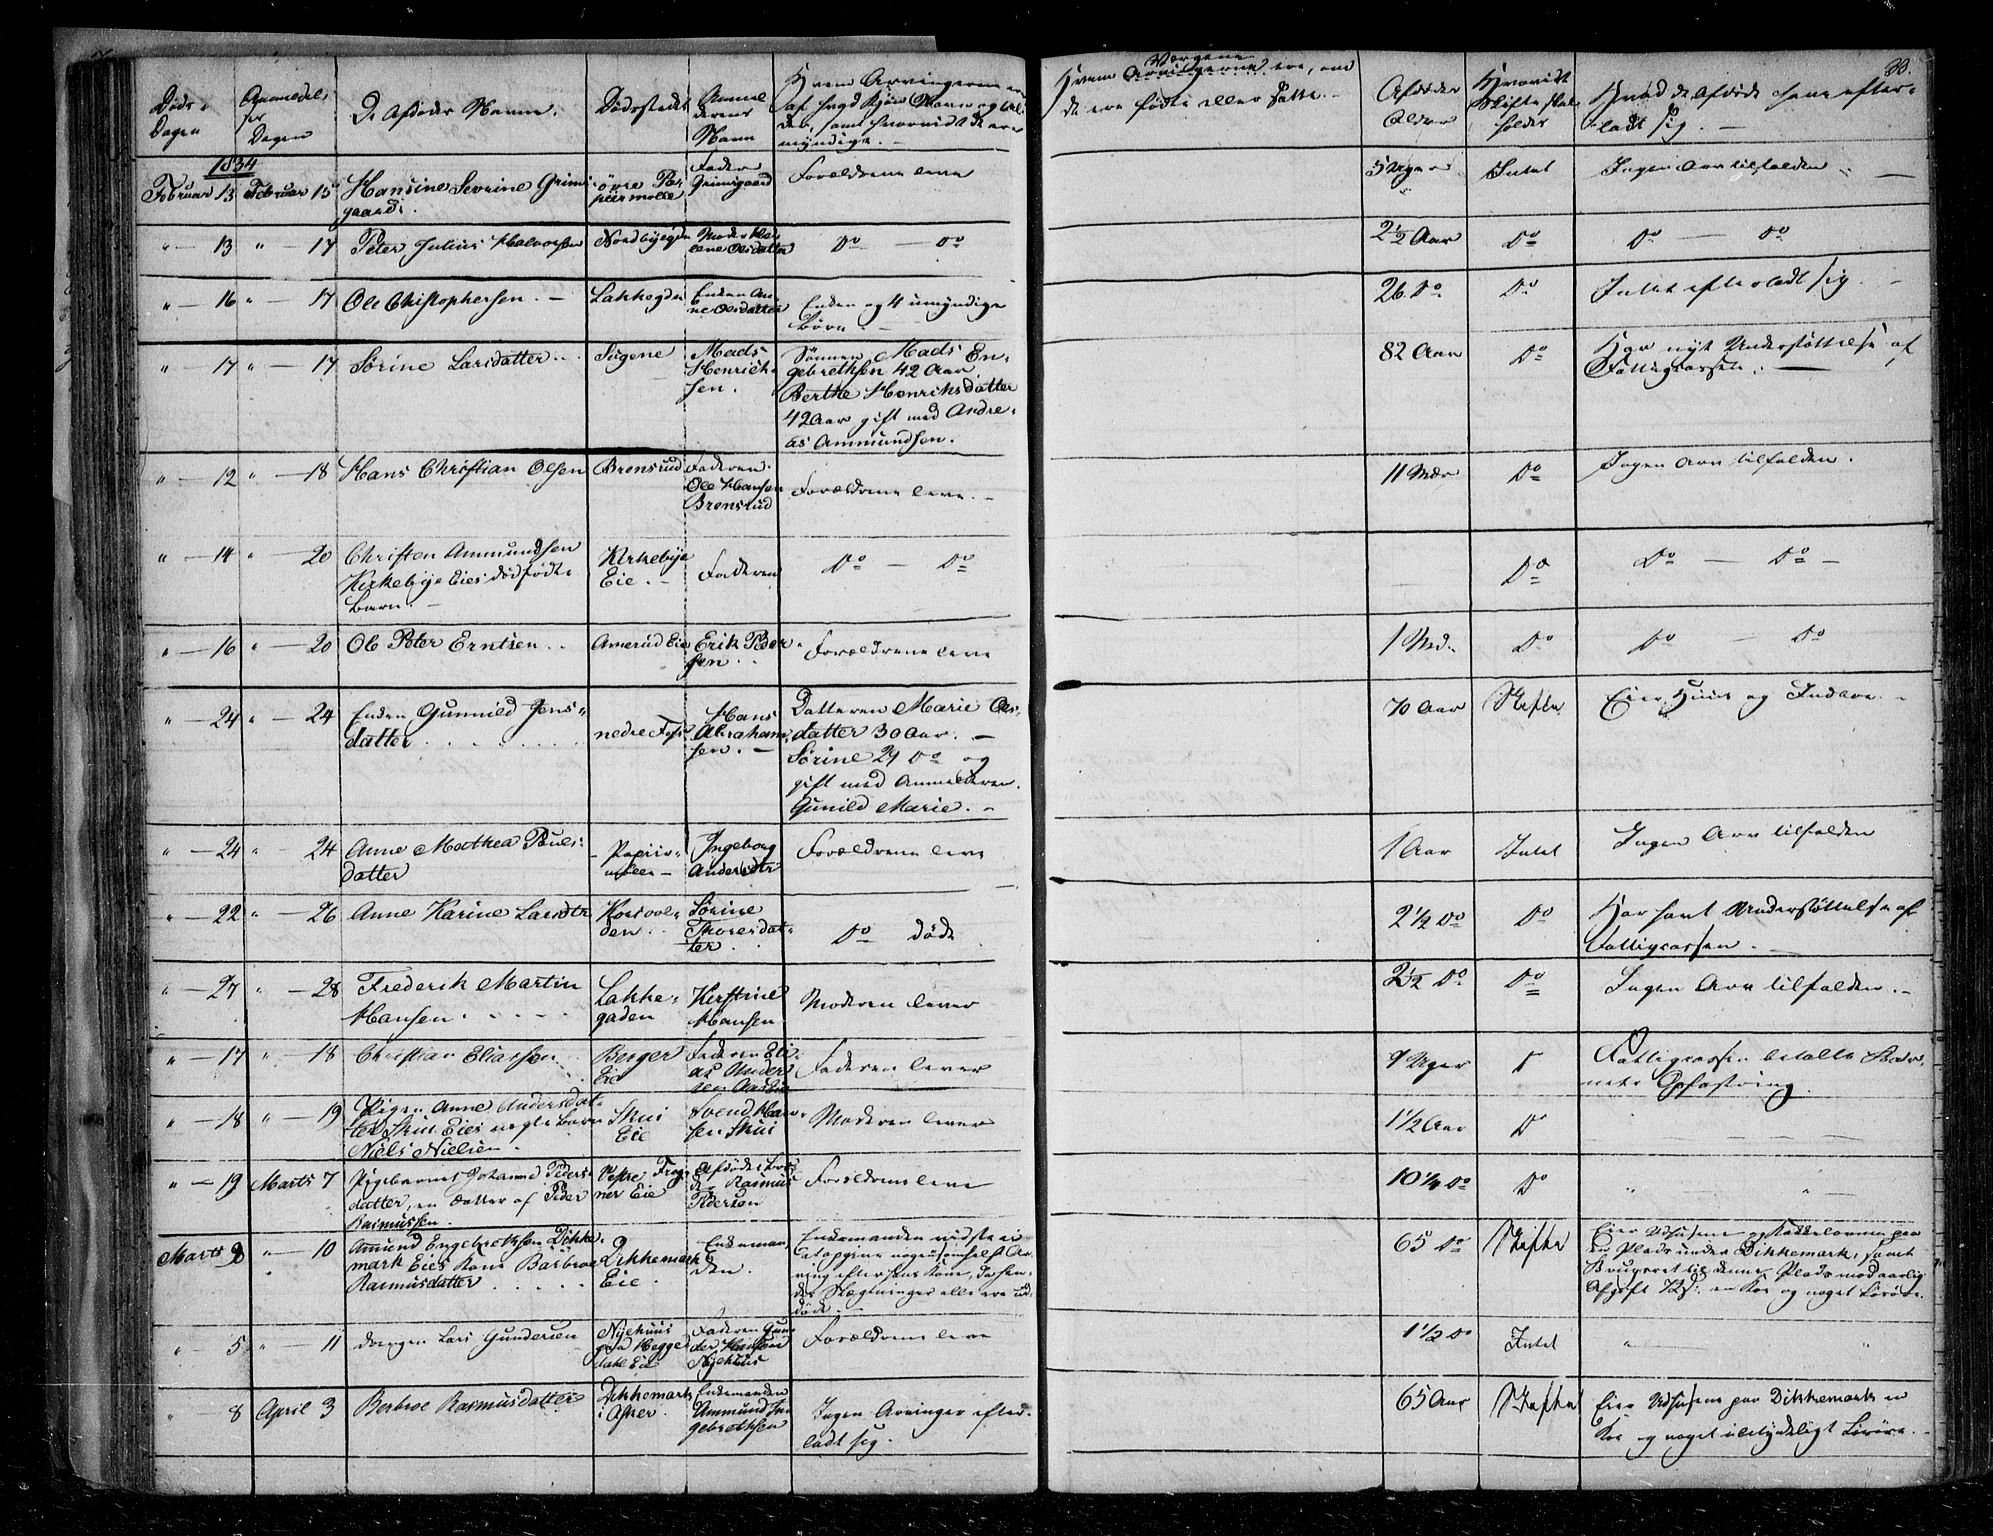 33.
Døds-
Dagen
Anmeldel-
ses
Dagen
De Afdødes Navne.
Dødsstedet
Anmel
derens
Navn
Hvem Arvingerne ere
af hvad Kjøn, Navn og Al-
der, samt hvorvidt de ere
myndige. -
Hvem Værgene ere, om
de ere fødte eller satte. -
Afdødes
Alder
Hvorvidt
Skifte hol
holdes
Hvad de Afdøde have efter-
ladt sig. -
1834
Februar 13 Februar 15 Hansine Sevrine Grims
gaard.
øvre Pa
piermølle
Fader
Grimsgaard
Forældrene leve
5 Uger
Intet
Ingen Arv tilfalden
" - 13 " - 17 Peter Julius Halvorsen
Nordbyegden
Moder
lene Olsdatter
Do - Do
2½ Aar
Do
Do - Do
" - 16 " - 17 Ole Christophersen. -
Lakkegden
Enken An-
ne Olsdatter
Enken og 4 umyndige
Børn. -
26 Do
Do
Intet efterladt sig. -
" - 17 " - 17 Sørine Larsdatter
Sugene
Mads
Henrich-
sen.
Sønnen Mads En-
gebrethsen 42 Aar
Berthe Henriksdatter
42 Aar gift med Andre-
as Ammundsen.
82 Aar
Do
Har nydt Understøttelse af
Fattigcassen. -
" - 12 " - 18 Hans Christian Olsen
Brensrud
Faderen
Ole Hansen
Brensrud
Forældrene leve. -
11 Mdr
Do
Ingen Arv tilfalden.
" - 14 " - 20 Christen Ammundsen
Kirkebye Eies dødfødte
Barn. -
Kirkebye
Eie. -
Faderen
Do - Do
Do
Do - Do -
" - 16 " - 20 Ole Peter Erntsen
Amerud Eie
Erik Peder-
sen
Forældrene leve
1 Md.
Do
Do - Do
" - 24 " - 24 Enken Gunnild Jens-
datter
nedre Foss
Hans
Abraham-
sen. -
Datteren Marie Ols-
datter 30 Aar. -
Sørine 24 Do og
gift med Anmelderen.
Gunild Marie. -
70 Aar
Skifte
Eier Huus og Indboe. -
" - 24 " - 24 Anne Mathea Pouls-
datter
Papiir-
møllen -
Ingeborg
Andersdtr
Forældrene leve
1 Aar
Intet
Ingen Arv tilfalden
" - 22 " - 26 Anne Karine Larsdtr
Korsvol-
den
Sørine
Thoresdat-
ter
Do døde
2½ Do
Do
Har havt Understøttelse af
Fattigcassen. -
" - 27 " - 28 Frederik Martin
Hansen.
Lakke-
gaden
Kirstine
Hansen
Moderen lever
2½ Do
Do
Ingen Arv tilfalden. -
" - 17 " - 18 Christian Eliassen
Berger
Eie
Faderen Eli-
as Ander
sen
Faderen lever
9 Uger
Do
Fattigcassen betalte Bar-
nets Opfostring.
" - 18 " - 19 Pigen Anne Andersdat-
ter Skui Eies uægte Barn
Niels Nielsen
Skui
Eie
Svend Han-
sen Skui
Moderen lever
1½ Aar
Do
" - 19 Marts 7 Pigebarnet Johanne Peders-
datter, en Datter af Peder
Rasmussen.
Vestre Frog
ner Eie
Afdødes Bro
der Rasmus
Pedersen
Forældrene leve
10¼ Do
Do
" "
Marts 8 " - 10 Amund Engebrethsen Dikke-
mark Eies Kone Barbroe
Rasmusdatter
Dikkemark
Eie.
Enkeman
den.
Enkemanden vidste ei
at opgive nogensomhelst Ar-
ving efter hans Kone, da hen-
des Slægtninger alle ere ud
døde. -
65 Do
Skifte
Eier Udhusene og Kakkelovnen paa
en Plads under Dikkemark, samt
Brugsret til denne Plads mod aarlig
Afgift en Koe og noget Løsøre.
" 5 " - 11 drengen Lars Gundersen
Nyehuus
Hegge
dahl Eie
Faderen Gun
der Hansen
Nyehuus
Forældrene leve
1½ Do
Intet
" "
" 8 April 3 Berbroe Rasmusdatter
Dikkemark
i Asker.
Enkemanden
Ammund En
gebrethsen
Ingen Arvinger efter-
ladt sig.
65 Aar
Skifte
Eier Udhusene paa Dikkemark en
Koe og noget ubetydeligt Løsøre. -